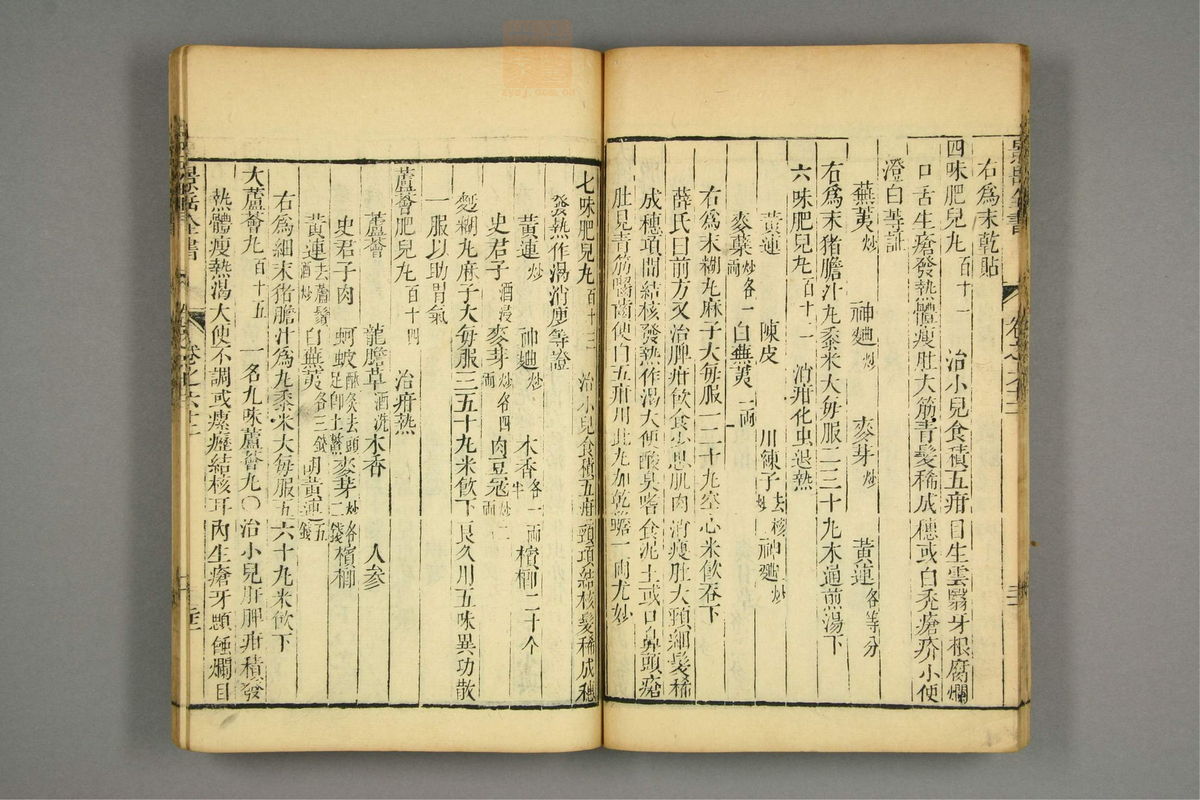 右爲末乾貼
四味肥兒丸百十一 治小兒食積五疳目生雲翳牙根腐爛
口舌生瘡發熱體瘦肚大筋青髮稀成穗或白禿瘡疥小便
澄白等証
蕪荑炒 神麯炒 麥芽炒 黃連各等分
右爲末猪膽汁丸黍米大每服二三十丸木通煎湯下
六味肥兒丸百十二 消疳化虫退熱
黃連 陳皮 川練子去核炒 神麯炒
麥蘗炒各一兩 白蕪荑一兩
右爲末糊丸麻子大每服一二十丸空心米飲吞下
薛氏曰前方又治脾疳飲食少思肌肉消瘦肚大頸細髮稀
成穗項間結核發熱作渴大便酸臭嗜食泥土或口鼻頭瘡
肚見青筋嚙齒便白五疳用此丸加乾蟾一兩尤妙
七味肥兒丸百十三 治小兒食積五疳頸項結核髮稀成穗
發熱作渴消瘦等證
黃連炒 神麯炒 木香各一兩半 檳榔二十个
史君子酒浸 麥芽炒各四兩 肉豆寇炮二兩
麫糊丸麻子大每服三五十丸米飲下良久用五味異功散
一服以助胃氣
蘆薈肥兒丸百十四 治疳熱
蘆薈 龍膽草酒洗 木香 人參
史君子肉 蚵蚾酥炙去頭足卽土鱉 麥芽炒各二錢 檳榔
黃連去蘆鬚酒炒 白蕪荑各三錢 胡黃連五錢
右爲細末猪膽汁爲丸黍米大每服五六十丸米飲下
大蘆薈丸百十五 一名九味蘆薈丸○治小兒肝脾疳積發
熱體瘦熱渴大便不調或瘰癧結核耳內生瘡牙顋蝕爛目
景岳全書
卷之六十二